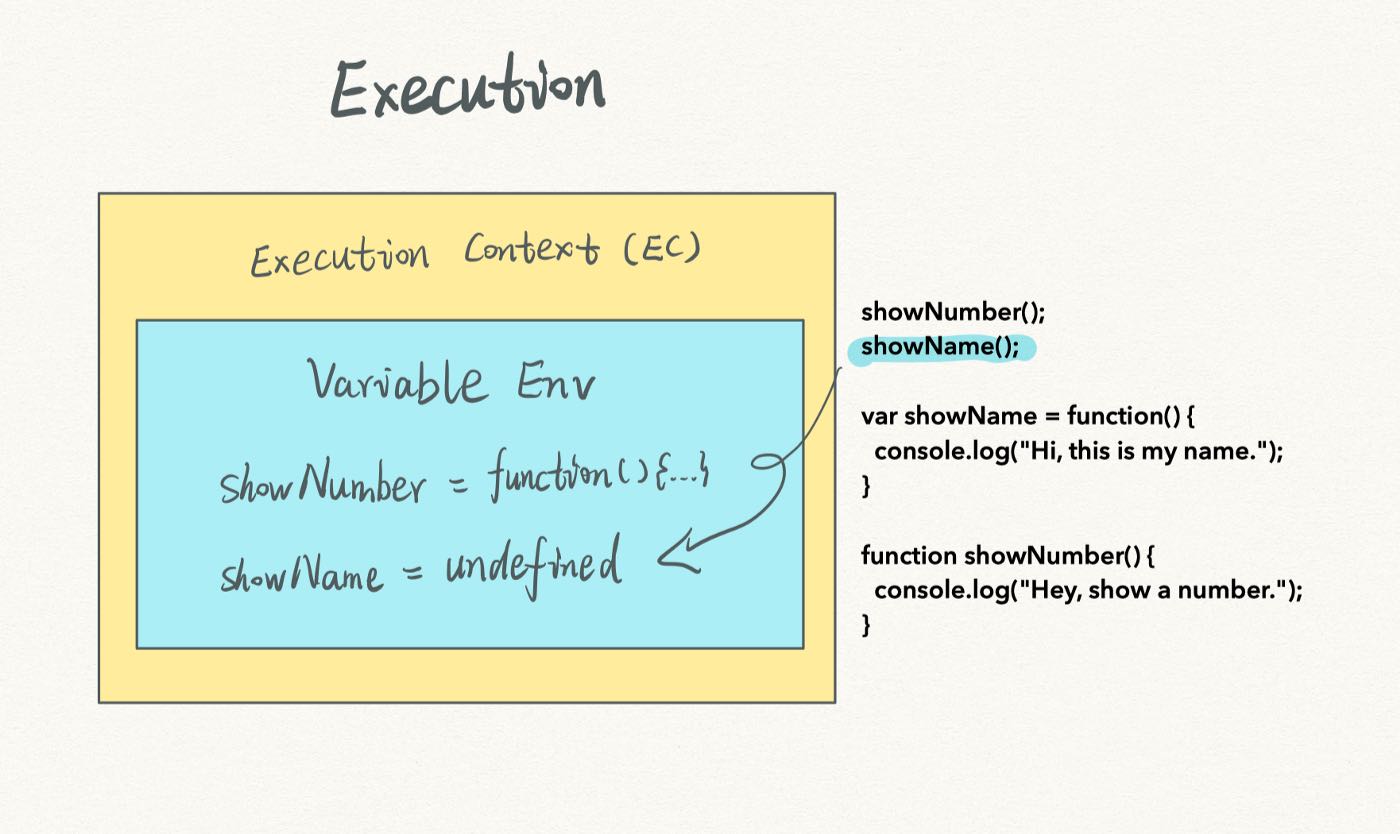 Execution
Execution Context (EC)
Variable Env
showNumber = function(){...}
showName = undefined
showNumber();
showName();
var showName = function() {
  console.log("Hi, this is my name.");
}
function showNumber() {
  console.log("Hey, show a number.");
}